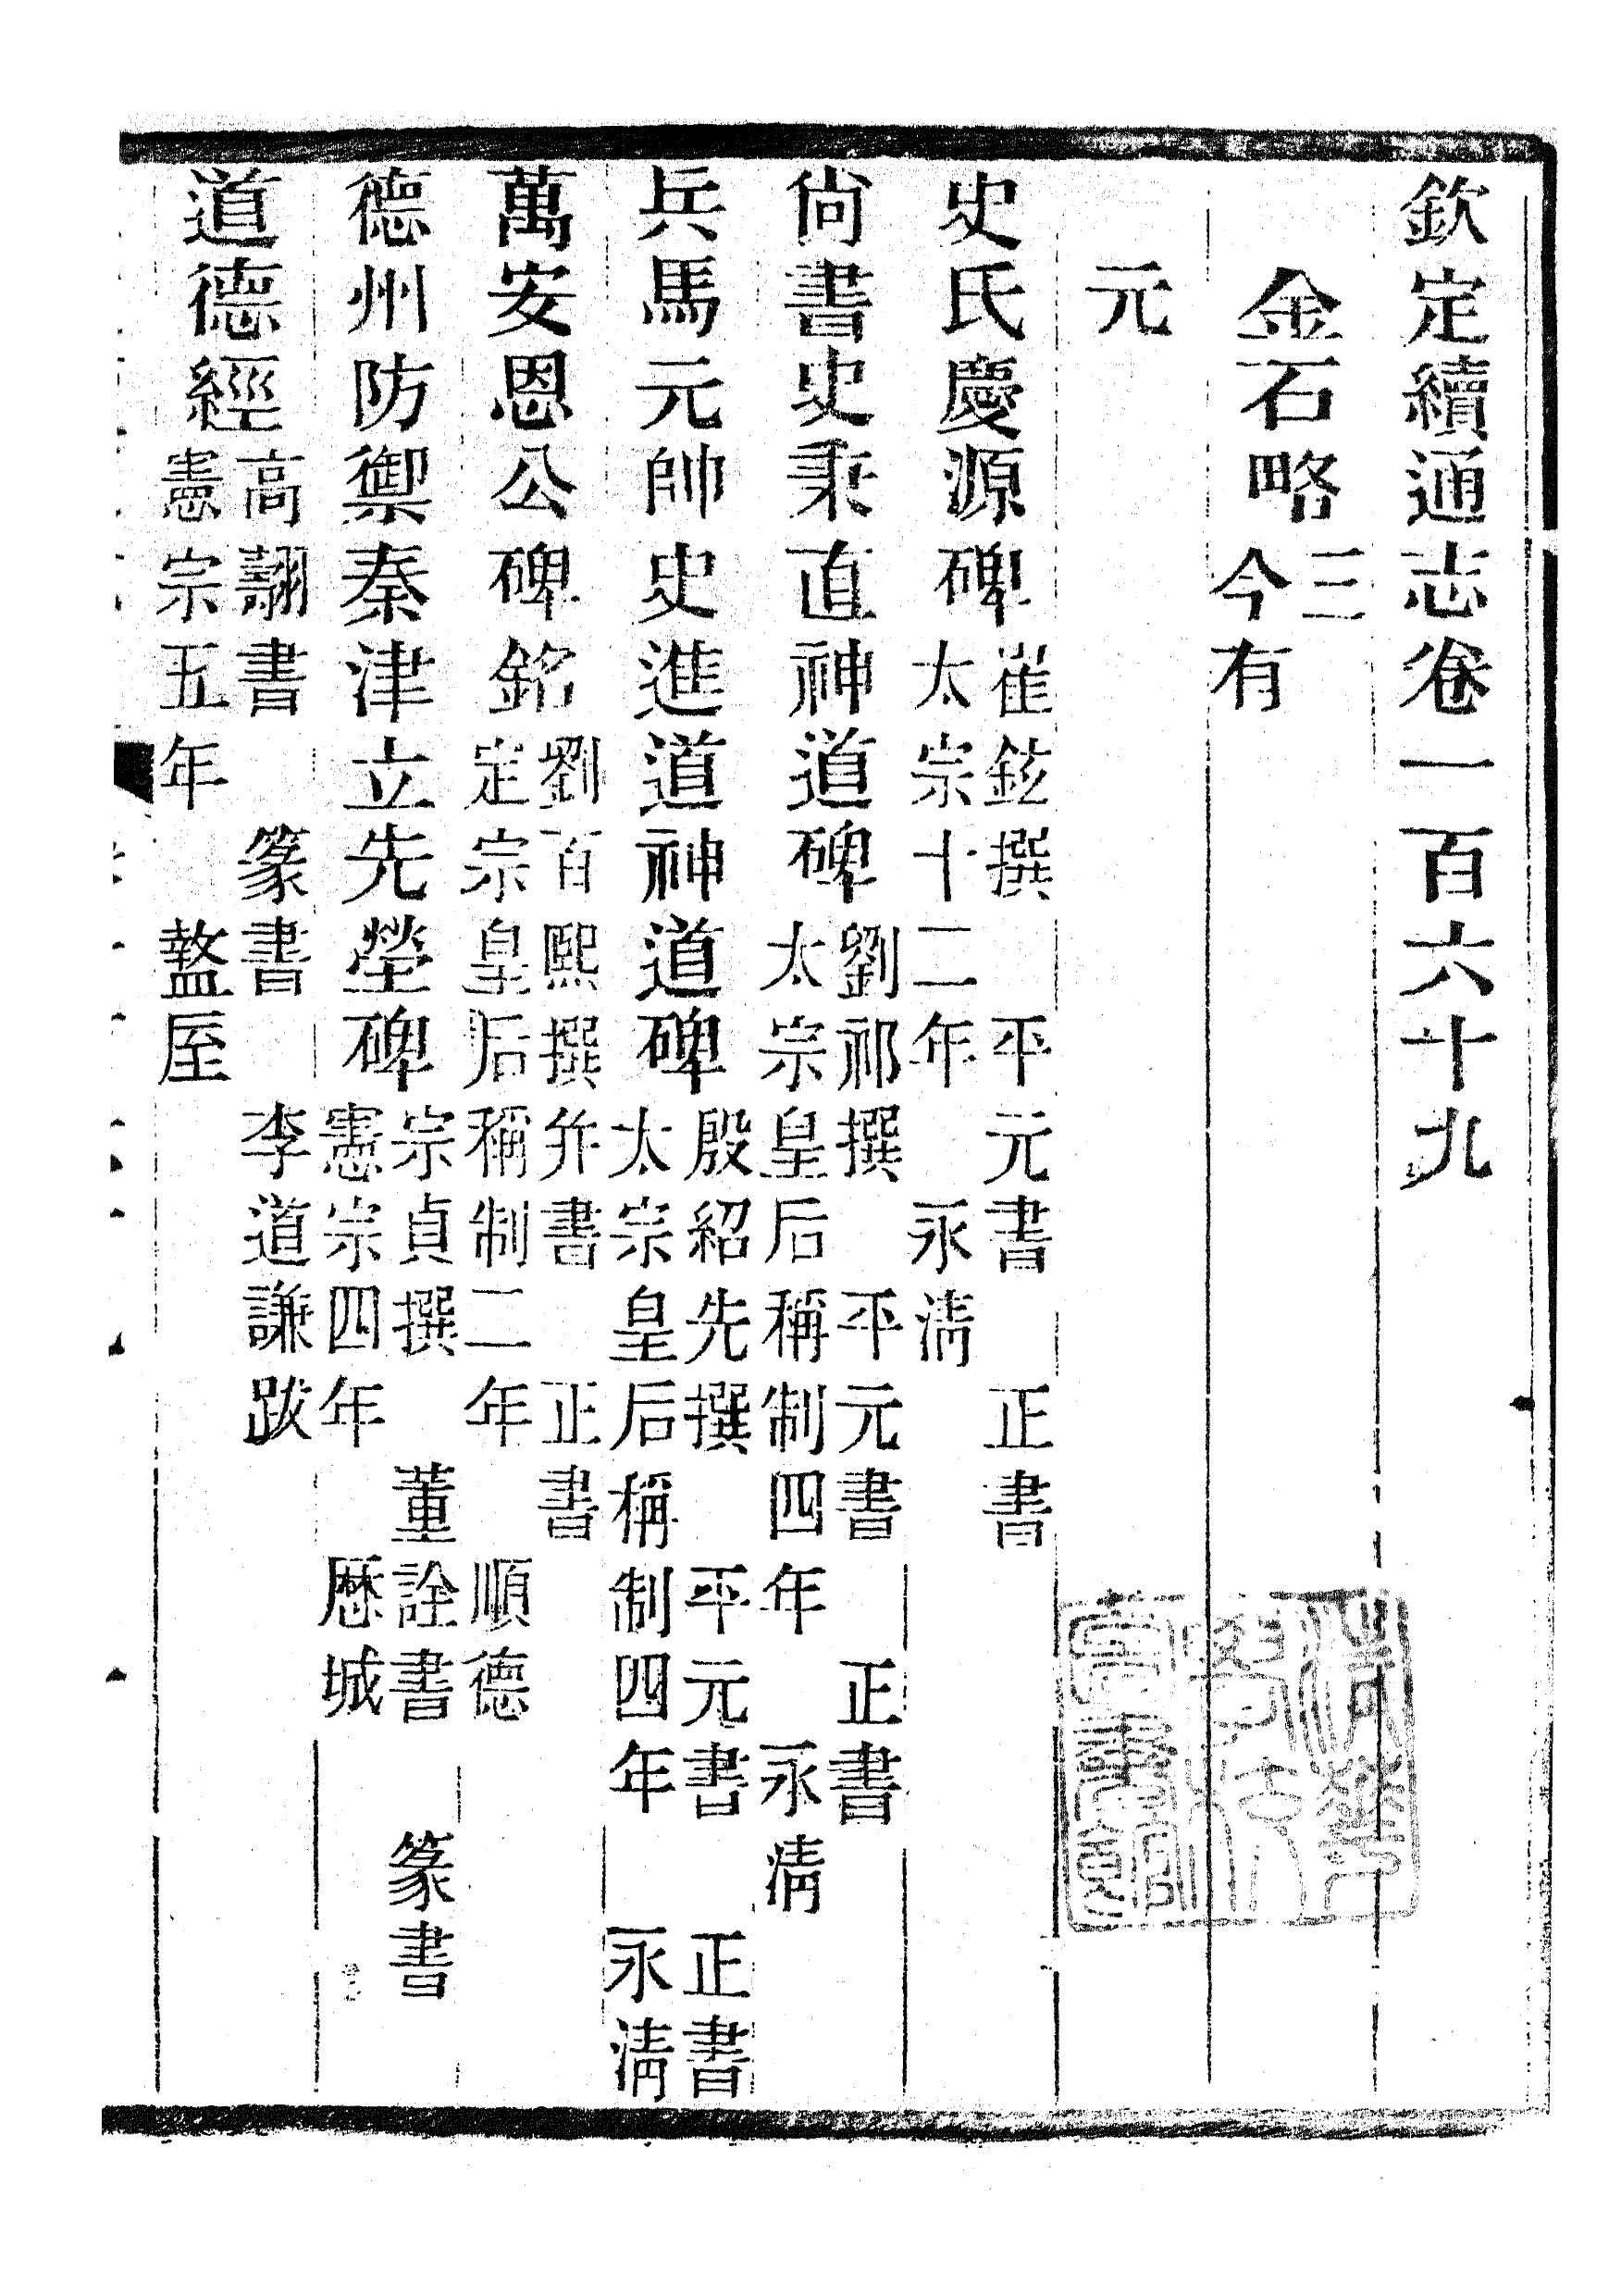 欽定續通志卷一百六十九
金石略三今有
元
史氏慶源碑崔鉉撰　平元書　正書太宗十二年　永清
尚書史秉直神道碑劉祁撰　平元書　正書太宗皇后稱制四年　永清
兵馬元帥史進道神道碑殷紹先撰　平元書　正書太宗皇后稱制四年　永清
萬安恩公碑銘劉百熙撰幷書　正書定宗皇后稱制二年　順德
德州防禦秦津立先塋碑宗貞撰　董詮書　篆書憲宗四年　厯城
道德經高翿書　篆書　李道謙跋憲宗五年　盩厔